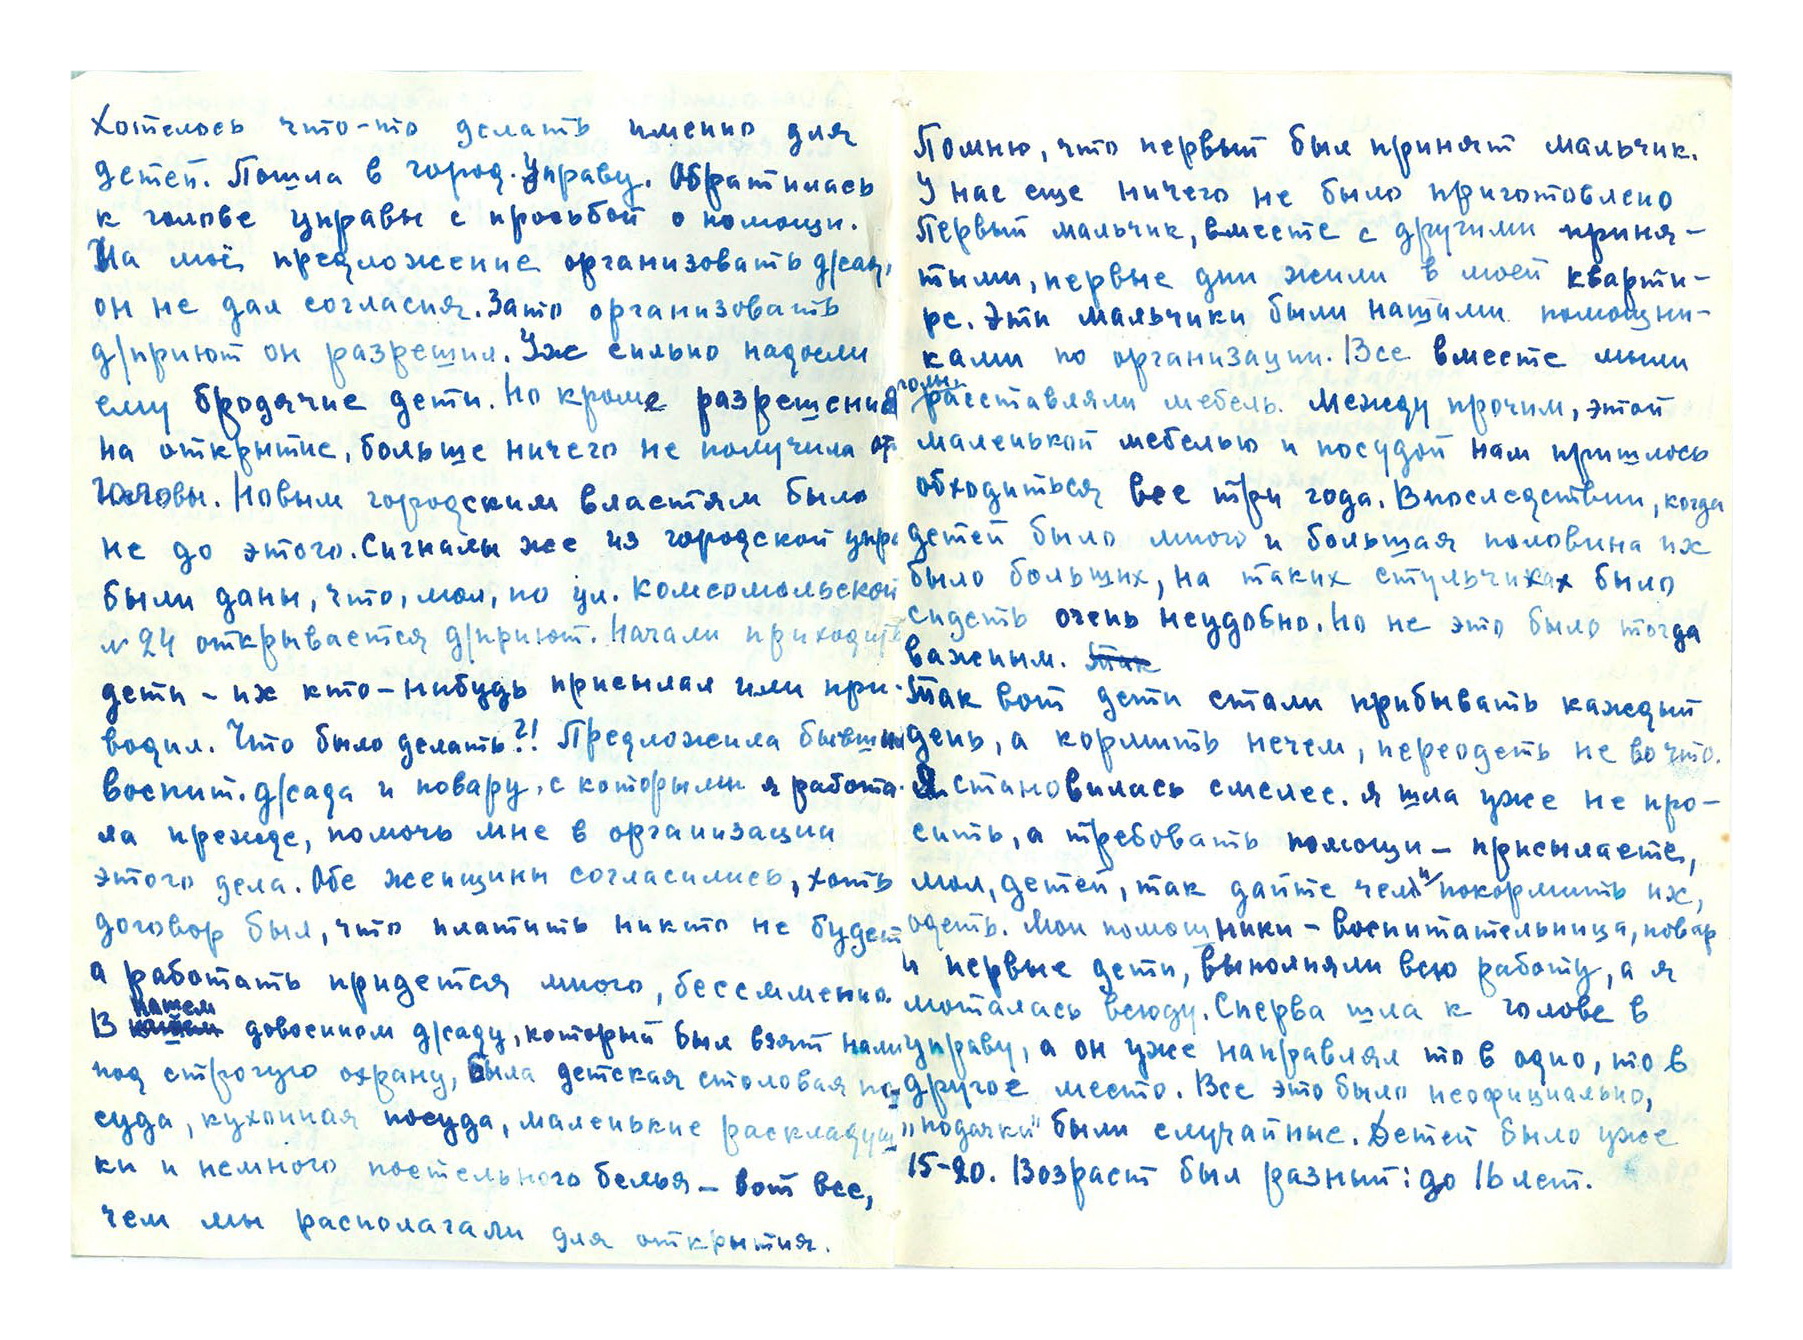 Хотелось что-то делать именно для
детей. Пошла в город. Управу. Обратилась
к голове управы с просьбой о помощи.
На моё предложение организовать д/сад,
он не дал согласия. Зато организовать
д/приют он разрешил. Уж сильно надоели
ему бродячие дети. Но кроме разрешения
на открытие, больше ничего не получила от
головы. Новым городским властям было
не до этого. Сигналы же из городской упра
были даны, что, мол, по ул. Комсомольской
№ 24 открывается д/приют. Начали приходить
дети – их кто-нибудь присылал или при-
водил. Что было делать?! Предложила бывшим
воспит. д/сада и повару, с которыми я работа-
ла прежде, помочь мне в организации
этого дела. Обе женщины согласились, хоть
договор был, что платить никто не будет
а работать придется много, бессменно.
В нашем довоенном д/саду, который был взят нами
под строгую охрану, была детская столовая по-
суда, кухонная посуда, маленькие раскладуш
ки и немного постельного белья – вот все,
чем мы располагали для открытия.
Помню, что первый был принят мальчик.
У нас еще ничего не было приготовлено
Первый мальчик, вместе с другими приня-
тыми, первые дни жили в моей кварти-
ре. Эти мальчики были нашими помощни-
ками по организации. Все вместе мыли
полы расставляли мебель. Между прочим, этой
маленькой мебелью и посудой нам пришлось
обходиться все три года. Впоследствии, когда
детей было много и большая половина их
было больших, на таких стульчиках было
сидеть очень неудобно. Но не это было тогда
важным. Так
Так вот дети стали прибывать каждый
день, а кормить нечем, переодеть не во что.
Я становилась смелее. Я шла уже не про-
сить, а требовать помощи – присылаете,
мол, детей, так дайте чем и покормить их,
одеть. Мои помощники – воспитательница, повар
и первые дети, выполняли всю работу, а я
моталась всюду. Сперва шла к голове в
управу, а он уже направлял то в одно, то в
другое место. Все это было неофициально,
„подачки" были случайные. Детей было уже
15-20. Возраст был разный: до 16 лет.